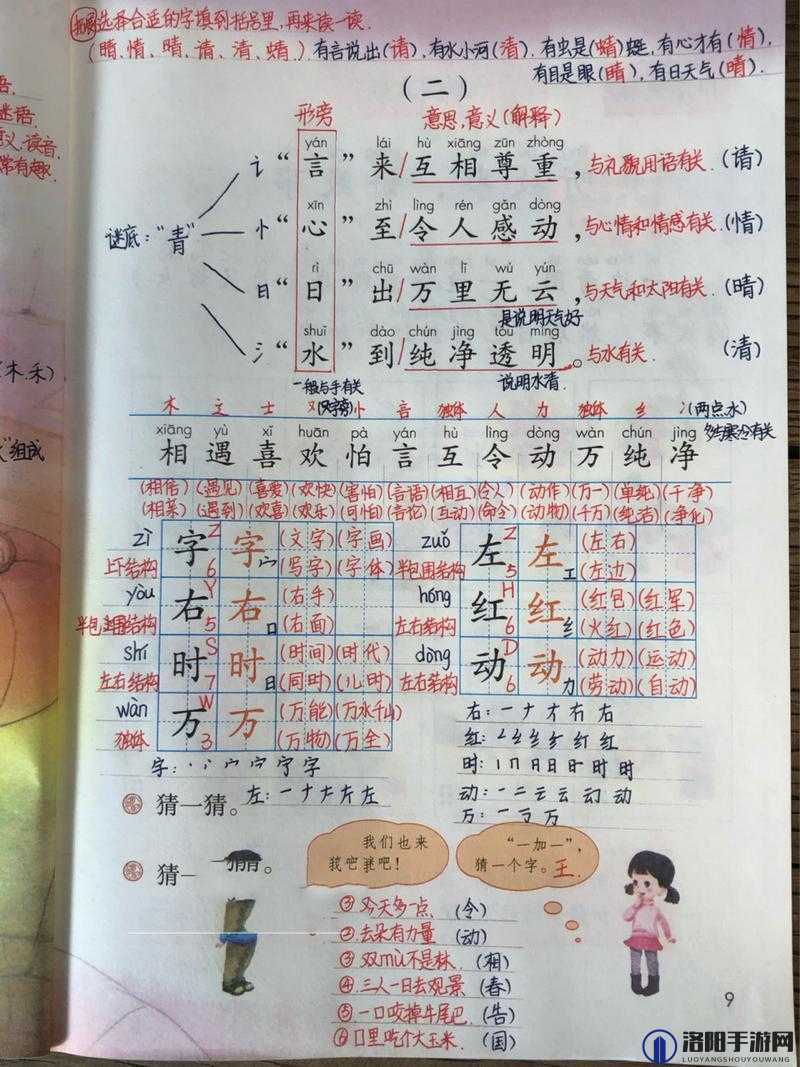 拓展选择合适的字填到括号里,再来读一读.
(睛、情、晴、请、清、蜻、) 有言说出(请),有水小河(清).有虫是(蜻)蜓,有心才有(情),
有目是眼(睛),有日天气(晴).
谜语
义、读音
常有趣.
(二)
形旁 意思,意义(解释)
yán lái hù xiāng zūn zhòng
讠“言”来/互相尊重,与礼貌用语有关.(请)
xīn zhì lìng rén gǎn dòng
忄“心”至/令人感动,与心情和情感有关.(情)
谜底:“青”
rì chū wàn lǐ wú yún
日“日”出/万里无云,与天气和太阳有关.(晴)
是说明天气好
shuǐ dào chún jìng tòu míng
氵“水”到/纯净透明。与水有关.(清)
一般与手有关 说明水清.
木、禾)
木 辶 士 又(又字旁) 忄 言 独体 人 力 独体 纟 冫(两点水)
多与寒冷有关
xiāng yù xǐ huān pà yán hù lìng dòng wàn chún jìng
相遇喜欢怕言互令动万纯净
”组成
(相信)(遇见)(喜爱)(欢快)(害怕)(言语)(相互)(令人)(动作)(万一)(单纯)(干净)
(相菜)(遇到)(欢喜)(欢乐)(可怕)(言论)(互动)(命令)(动物)(千万)(纯洁)(净化)
zì 字 Z 6 字 宀 (文字)(字画)
上下结构 (写字)(字体)
zuǒ 左 Z 5 左 工 (左右)
半包围结构 (左边)
yòu 右 Y 5 右 口 (右手)
半包围结构 (右面)
hóng 红 H 6 红 纟 (红包)(红军)
左右结构 (火红)(红色)
shí 时 S 7 时 日 (时间)(时代)
左右结构 (同时)(儿时)
dòng 动 D 6 动 力 (动力)(运动)
左右结构 (劳动)(自动)
wàn 万 W 3 万 (万能)(万水千山)
独体 (万物)(万全)
右:一ナ𠂇右右
红:纟纟纟红红红
时:丨冂日日时时时
动:一二云云动动
万:一丆万
字:丶丶宀宀字字
左:一ナ𠂇左左
猜一猜。
猜一猜。
我们也来
我吧我吧!
“一加一”,
猜一个字。王.
③今天多一点. (令)
②去朵有力量 (动)
③双mù不是林. (相)
④三人一日去观景.(春)
⑤一口咬掉牛尾巴.(告)
⑥口里吃个大玉米.(国)
9
洛阳手游网
LUOYANGSHOUYOUWANG